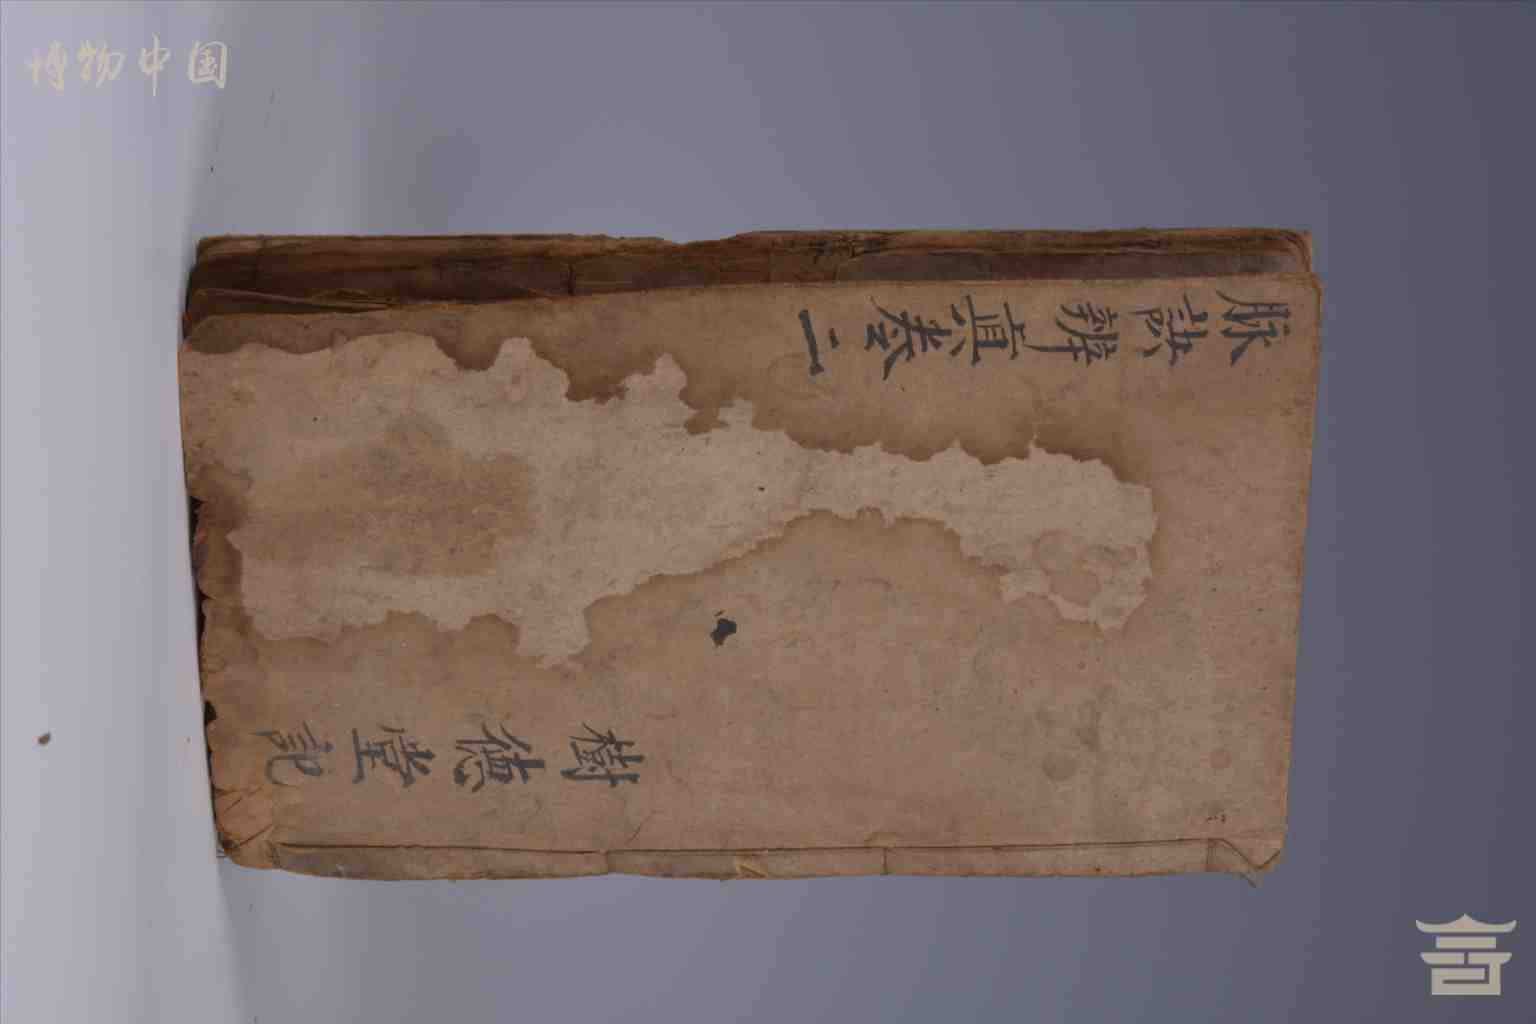 博物中国
脉訣辨真卷二
樹德堂記